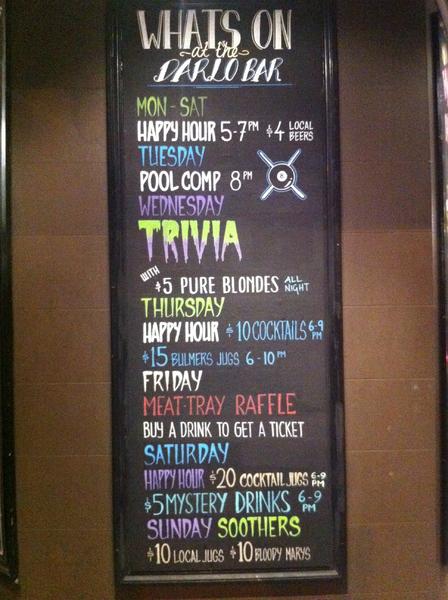 WHATS ON
at the
DARLO BAR
MON - SAT
HAPPY HOUR 5-7PM $4 LOCAL BEERS
TUESDAY
POOL COMP 8PM
WEDNESDAY
TRIVIA
WITH $5 PURE BLONDES ALL NIGHT
THURSDAY
HAPPY HOUR $10 COCKTAILS 6-9 PM
$15 BULMERS JUGS 6-10PM
FRIDAY
MEAT-TRAY RAFFLE
BUY A DRINK TO GET A TICKET
SATURDAY
HAPPY HOUR $20 COCKTAIL JUGS 6-9 PM
$5 MYSTERY DRINKS 6-9 PM
SUNDAY SOOTHERS
$10 LOCAL JUGS $10 BLOODY MARYS